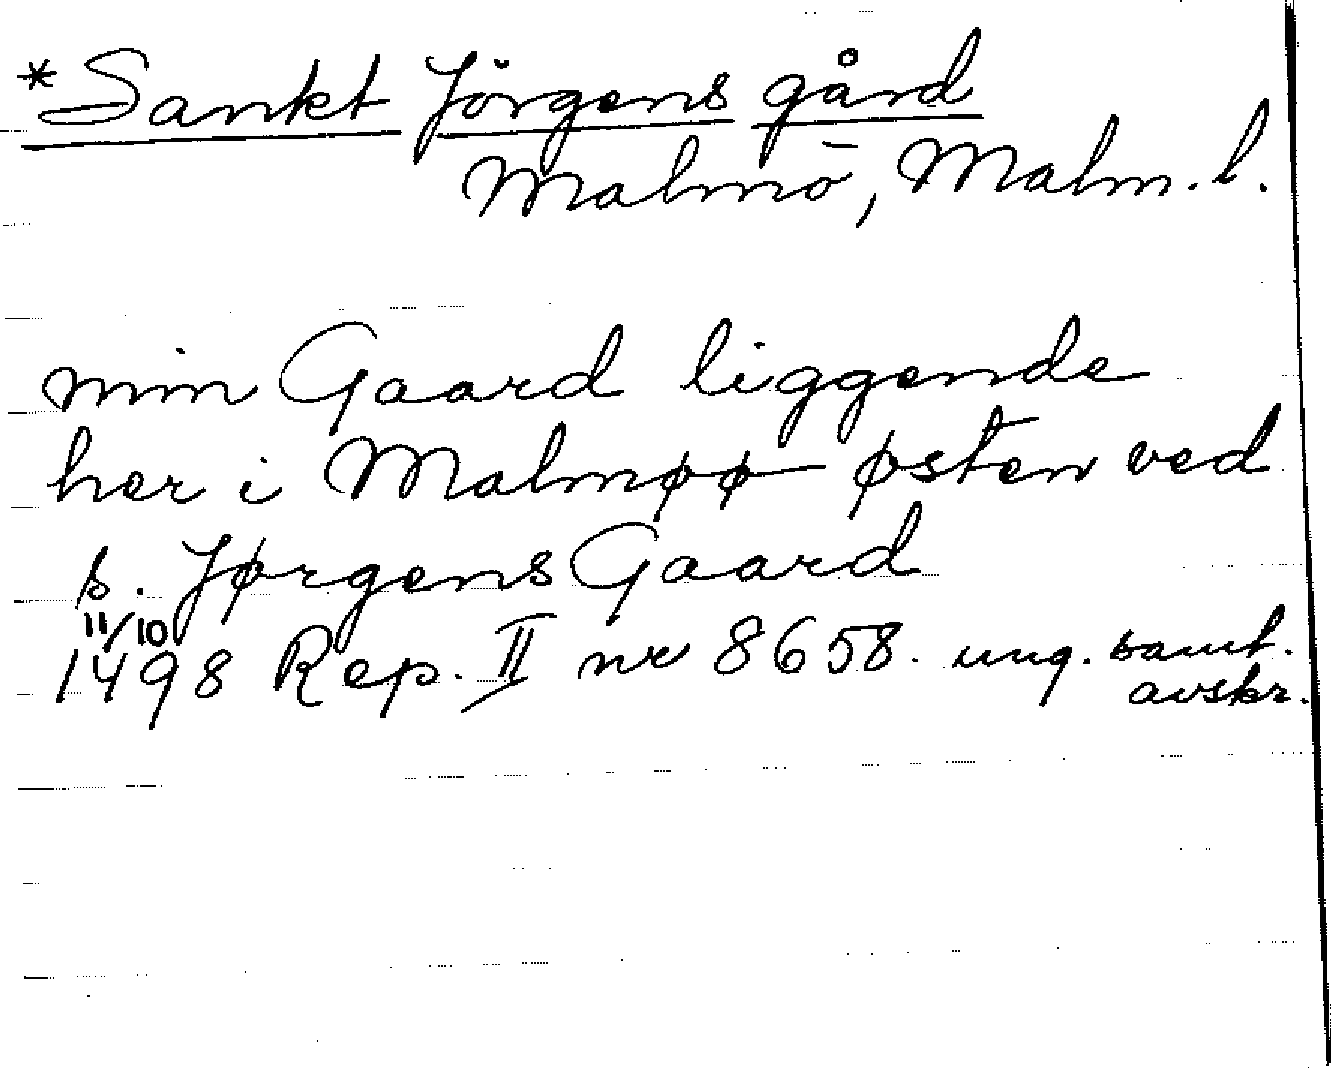 *Sankt Jörgens gård
Malmö, Malm. l.
min Gaard liggende
her i Malmøø østen ved
s. Jørgens Gaard
11/10
1498 Rep. II nr 8658. ung. samt.
avskr.